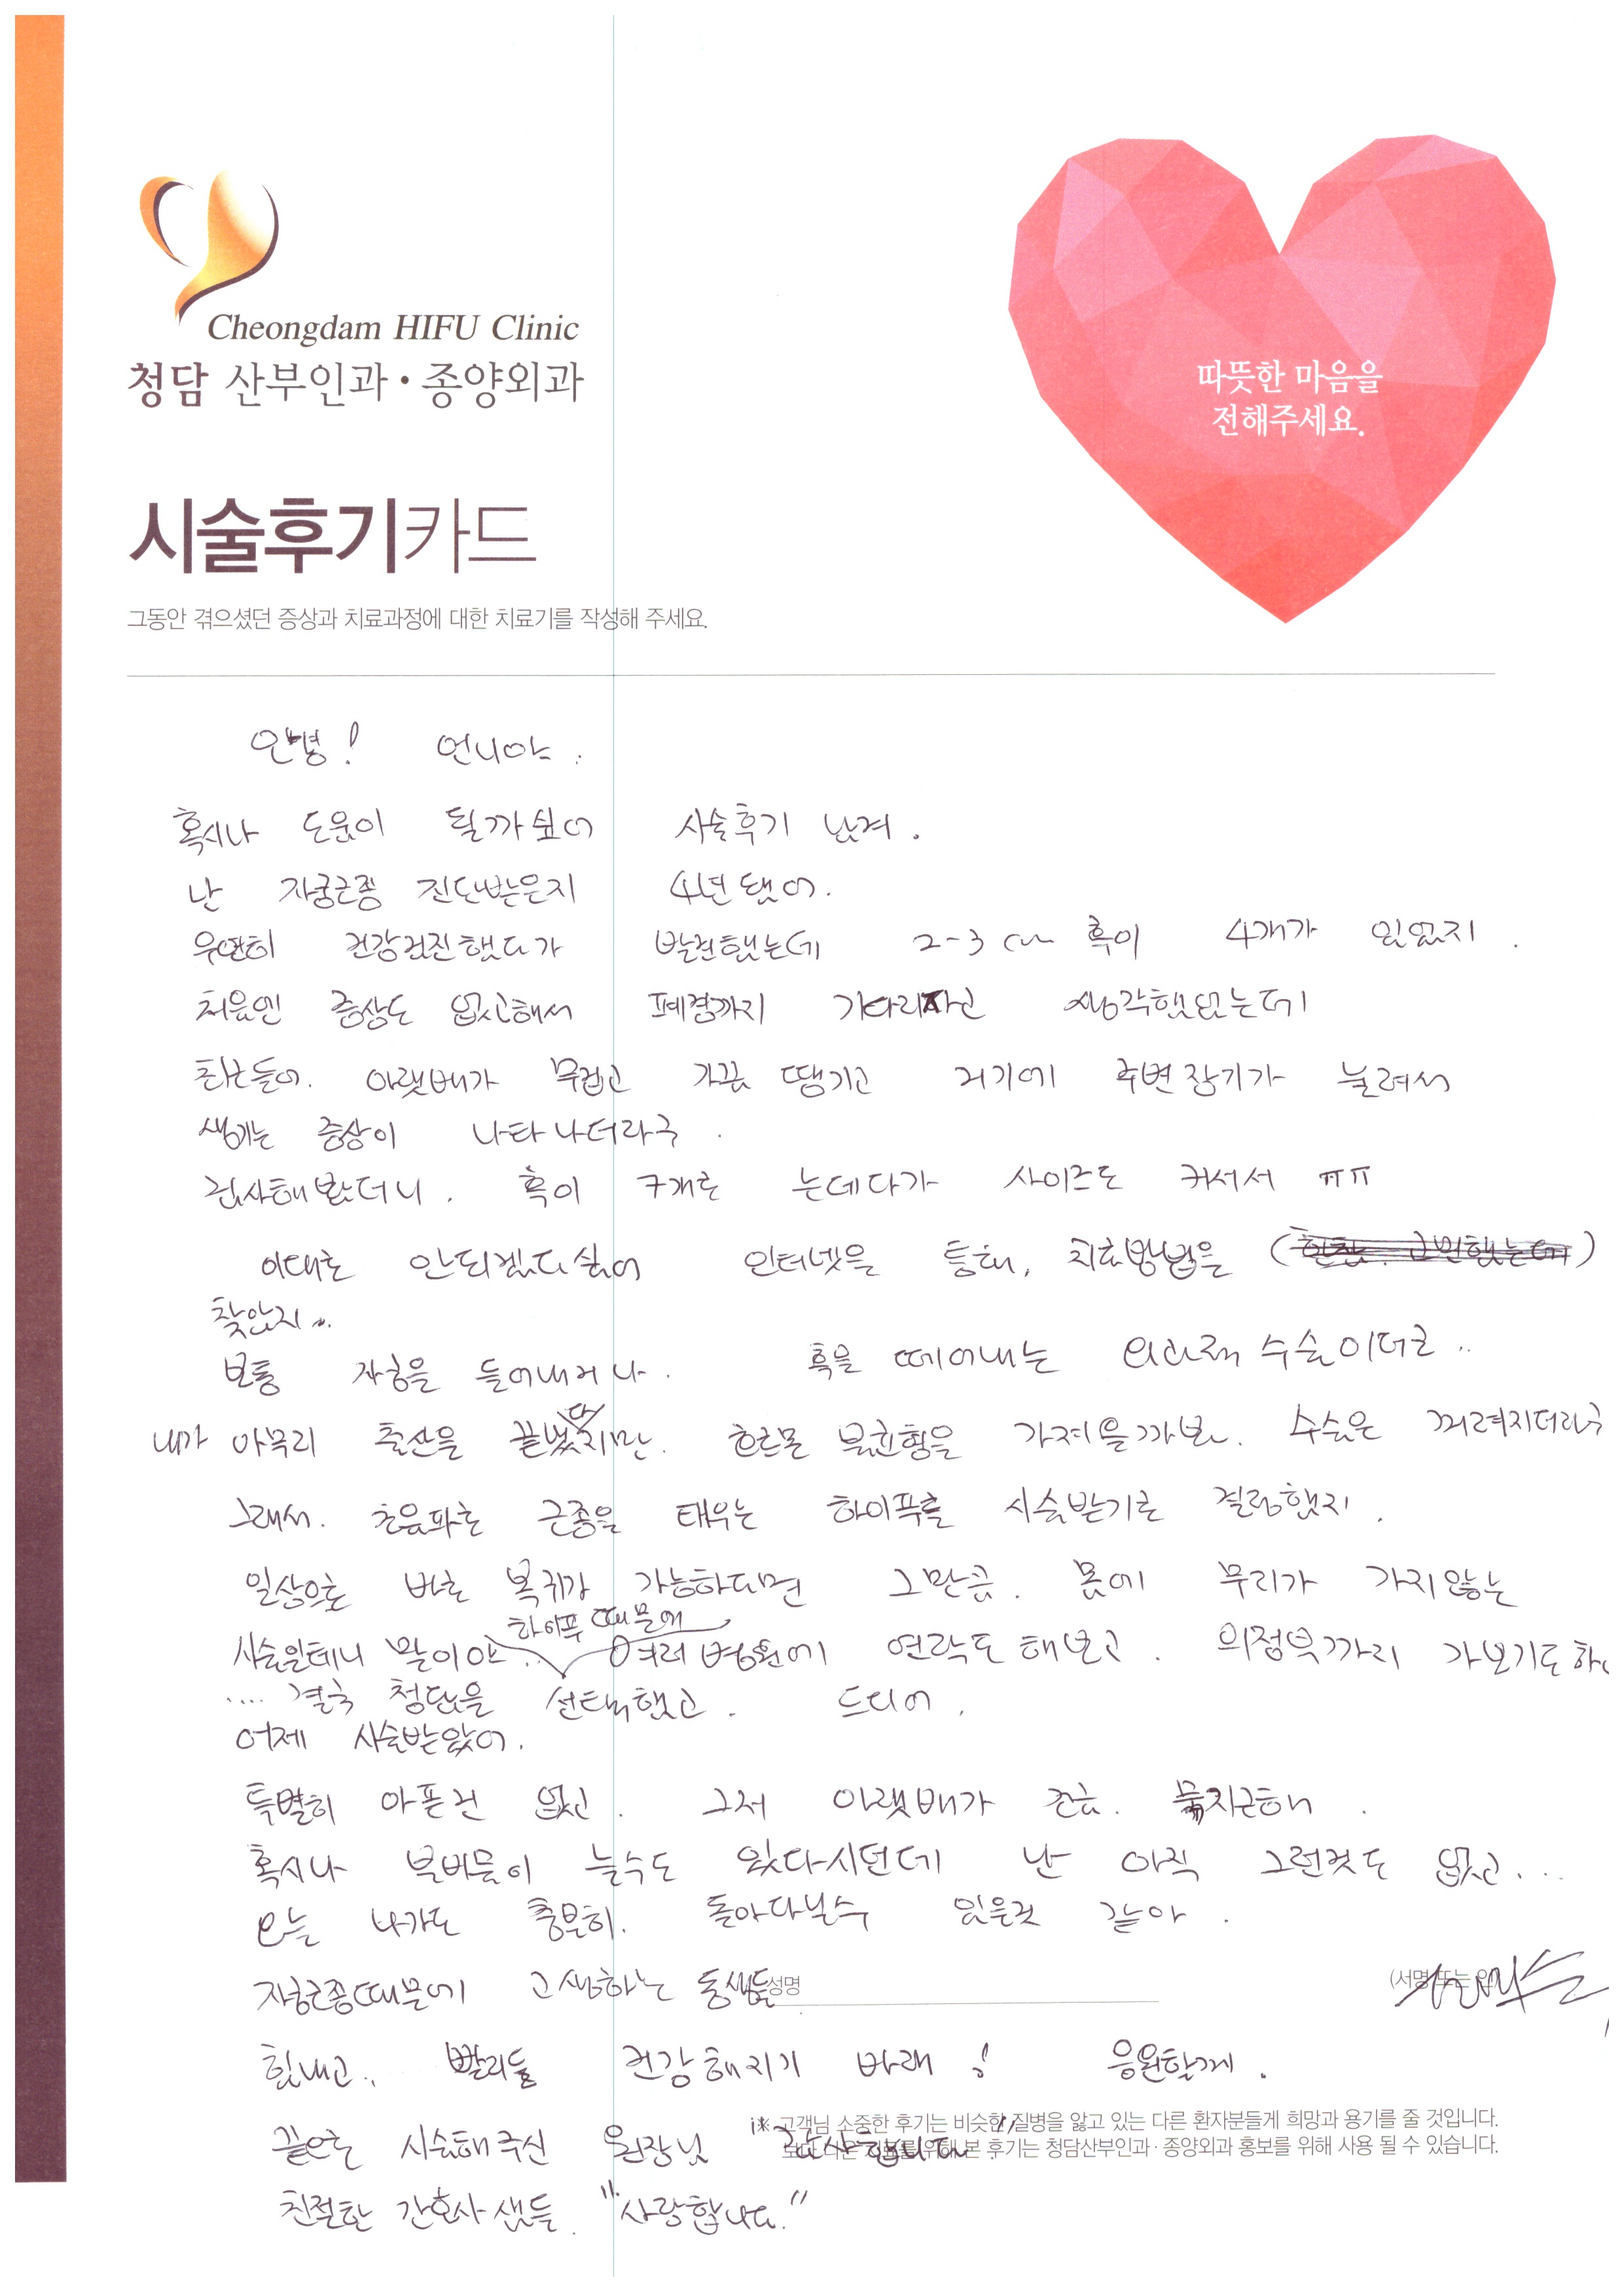 Cheongdam HIFU Clinic
청담 산부인과·종양외과
따뜻한 마음을
전해주세요.
시술후기카드
그동안 겪으셨던 증상과 치료과정에 대한 치료기를 작성해 주세요.
안녕! 언니야.
혹시나 도움이 될까 싶어 시술후기 남겨.
난 자궁근종 진단받은지 4년 됐어.
우연히 건강검진했다가 발견했는데 2-3cm 혹이 4개가 있었지.
처음엔 증상도 없고해서 폐경까지 기다리자고 생각했었는데
최근들어. 아랫배가 무겁고 가끔 땡기고 거기에 주변 장기가 눌려서
생기는 증상이 나타나더라구.
검사해봤더니. 혹이 7개로 는데다가 사이즈도 커져서 ㅠㅠ
이대로 안되겠다 싶어 인터넷을 통해, 치료방법을 (한참 고민했는데)
찾았지..
보통 자궁을 들어내거나. 혹을 떼어내는 외과적 수술이더군..
내가 아무리 출산을 끝냈다지만. 호르몬 불균형을 가져올까봐. 수술은 꺼려지더라구
그래서. 초음파로 근종을 태우는 하이푸를 시술받기로 결정했지.
일상으로 바로 복귀가 가능하다면 그만큼. 몸에 무리가 가지않는
시술일테니 말이야.. 하이푸 때문에 여러 병원에 연락도 해보고. 의정부까지 가보기도 하고
.... 결국 청담을 선택했고. 드디어.
어제 시술받았어.
특별히 아픈건 없고. 그저 아랫배가 조금. 묵지근해.
혹시나 분비물이 늘수도 있다시던데 난 아직 그런것도 없고...
오늘 나가도 충분히. 돌아다닐수 있을것 같아.
자궁근종때문에 고생하는 동생들
성명
(서명 또는 인)
힘내고.. 빨리들 건강해지기 바래! 응원할게.
※ 고객님 소중한 후기는 비슷한 질병을 앓고 있는 다른 환자분들게 희망과 용기를 줄 것입니다.
끝으로 시술해주신 원장님 "감사합니다"
본 후기는 청담산부인과·종양외과 홍보를 위해 사용 될 수 있습니다.
친절한 간호사 샘들. "사랑합니다."